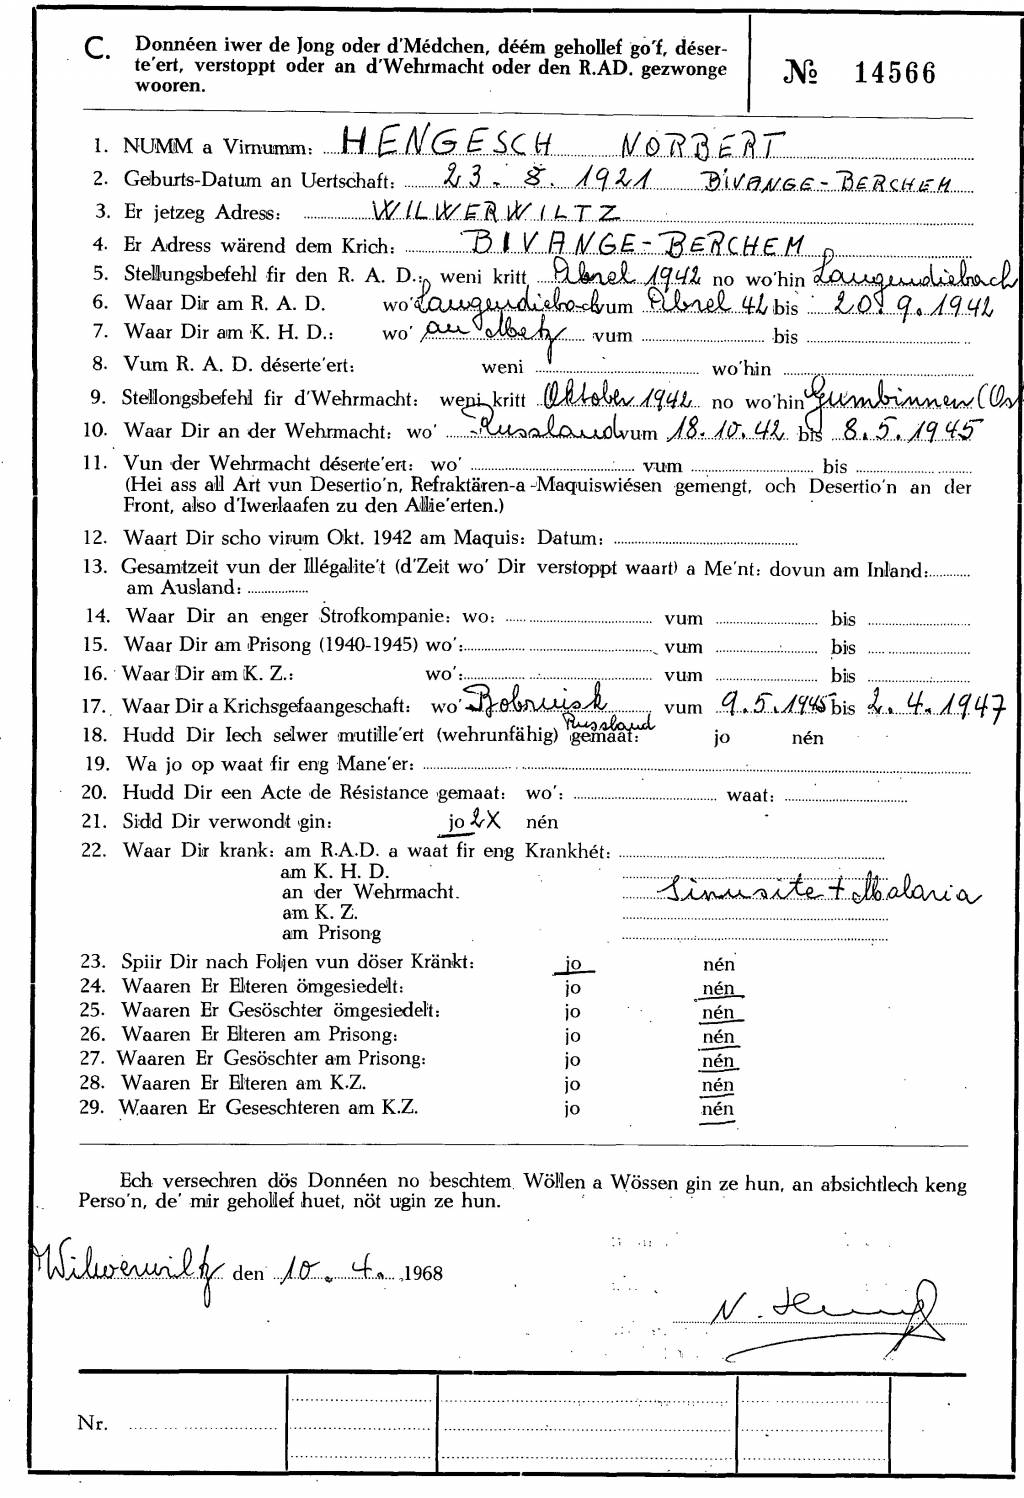 C. Donnéen iwer de Jong oder d'Médchen, déém gehollef go'f, déser-
te'ert, verstoppt oder an d'Wehrmacht oder den R.AD. gezwonge
wooren.
№ 14566
1. NUMM a Virnumm: HENGESCH NORBERT
2. Geburts-Datum an Uertschaft: 23. 8. 1921 BIVANGE-BERCHEM
3. Er jetzeg Adress: WILWERWILTZ
4. Er Adress wärend dem Krich: BIVANGE-BERCHEM
5. Stellungsbefehl fir den R. A. D.: weni kritt Abrel 1942 no wo'hin Langendiebach
6. Waar Dir am R. A. D. wo' Langendiebach vum Abrel 42 bis 20. 9. 1942
7. Waar Dir am K. H. D.: wo' an Metz vum bis
8. Vum R. A. D. déserte'ert: weni wo'hin
9. Stellongsbefehl fir d'Wehrmacht: weni kritt Oktober 1942 no wo'hin Gumbinnen (Ost
10. Waar Dir an der Wehrmacht: wo' Russland vum 18. 10. 42 bis 8. 5. 1945
11. Vun der Wehrmacht déserte'ert: wo' vum bis
(Hei ass all Art vun Desertio'n, Refraktären-a -Maquiswiésen gemengt, och Desertio'n an der
Front, also d'Iwerlaafen zu den Allie'erten.)
12. Waart Dir scho virum Okt. 1942 am Maquis: Datum:
13. Gesamtzeit vun der Illégalite't (d'Zeit wo' Dir verstoppt waart) a Me'nt: dovun am Inland:
am Ausland:
14. Waar Dir an enger Strofkompanie: wo: vum bis
15. Waar Dir am Prisong (1940-1945) wo': vum bis
16. Waar Dir am K. Z.: wo': vum bis
17. Waar Dir a Krichsgefaangeschaft: wo' Bobruisk vum 9. 5. 1945 bis 2. 4. 1947
Russland
18. Hudd Dir Iech selwer mutille'ert (wehrunfähig) gemaat: jo nén
19. Wa jo op waat fir eng Mane'er:
20. Hudd Dir een Acte de Résistance gemaat: wo': waat:
21. Sidd Dir verwondt gin: jo 2X nén
22. Waar Dir krank: am R.A.D. a waat fir eng Krankhét:
am K. H. D.
an der Wehrmacht. Sinusite + Malaria
am K. Z.
am Prisong
23. Spiir Dir nach Foljen vun döser Kränkt: jo nén
24. Waaren Er Elteren ömgesiedelt: jo nén
25. Waaren Er Gesöschter ömgesiedelt: jo nén
26. Waaren Er Elteren am Prisong: jo nén
27. Waaren Er Gesöschter am Prisong: jo nén
28. Waaren Er Elteren am K.Z. jo nén
29. Waaren Er Geseschteren am K.Z. jo nén
Ech versechren dös Donnéen no beschtem Wöllen a Wössen gin ze hun, an absichtlech keng
Perso'n, de' mir gehollef huet, nöt ugin ze hun.
Wilwerwiltz den 10. 4. 1968
N.
Nr.